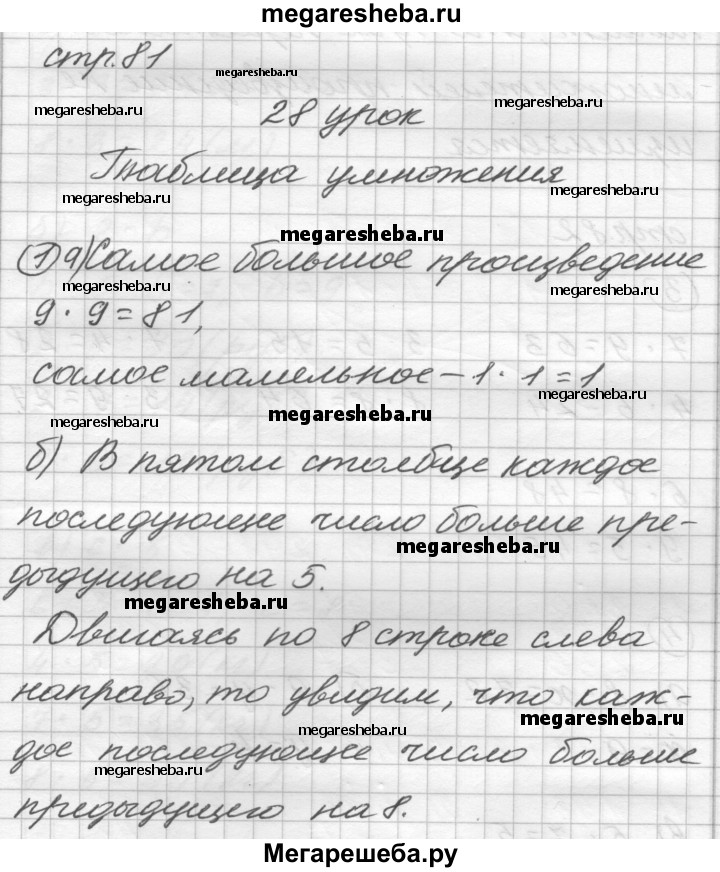 megaresheba.ru
стр. 81
megaresheba.ru
megaresheba.ru
megaresheba.ru
28 урок
Таблица умножения
megaresheba.ru
megaresheba.ru
megaresheba.ru
1) а) Самое большое произведение
megaresheba.ru
megaresheba.ru
9 · 9 = 81,
самое мамельное – 1 · 1 = 1
megaresheba.ru
megaresheba.ru
megaresheba.ru
б) В пятом столбце каждое
последующее число больше пре-
megaresheba.ru
дыдущего на 5.
megaresheba.ru
Двигаясь по 8 строке слева
направо, то увидим, что каж-
megaresheba.ru
megaresheba.ru
дое последующее число больше
megaresheba.ru
предыдущего на 8.
Мегарешеба.ру